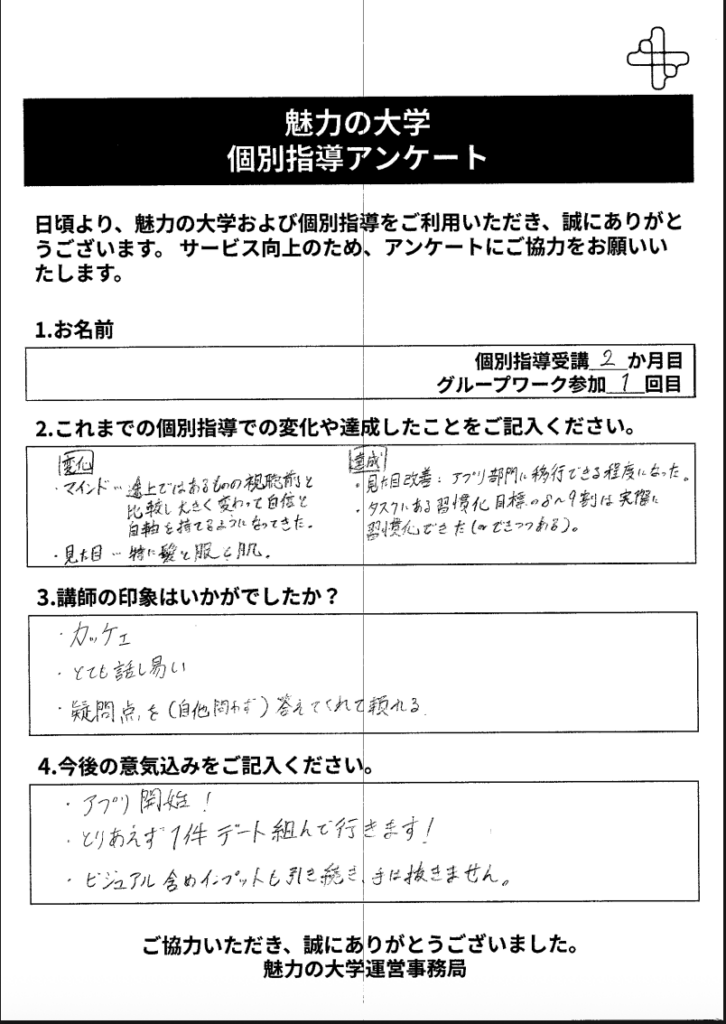 魅力の大学
個別指導アンケート
日頃より、魅力の大学および個別指導をご利用いただき、誠にありがと
うございます。 サービス向上のため、アンケートにご協力をお願いい
たします。
1.お名前
個別指導受講 2 か月目
グループワーク参加 1 回目
2.これまでの個別指導での変化や達成したことをご記入ください。
変化
・マインド…途上ではあるものの視聴前と
比較し大きく変わって自信と
自軸を持てるようになってきた。
・見た目…特に髪と服と肌。
達成
・見た目改善：アプリ部門に移行できる程度になった。
・タスクにある習慣化目標の8〜9割は実際に
習慣化できた(orできつつある)。
3.講師の印象はいかがでしたか？
・カッケェ
・とても話し易い
・疑問点を(自他問わず)答えてくれて頼れる
4.今後の意気込みをご記入ください。
・アプリ開始！
・とりあえず1件デート組んで行きます！
・ビジュアル含めインプットも引き続き、手は抜きません。
ご協力いただき、誠にありがとうございました。
魅力の大学運営事務局